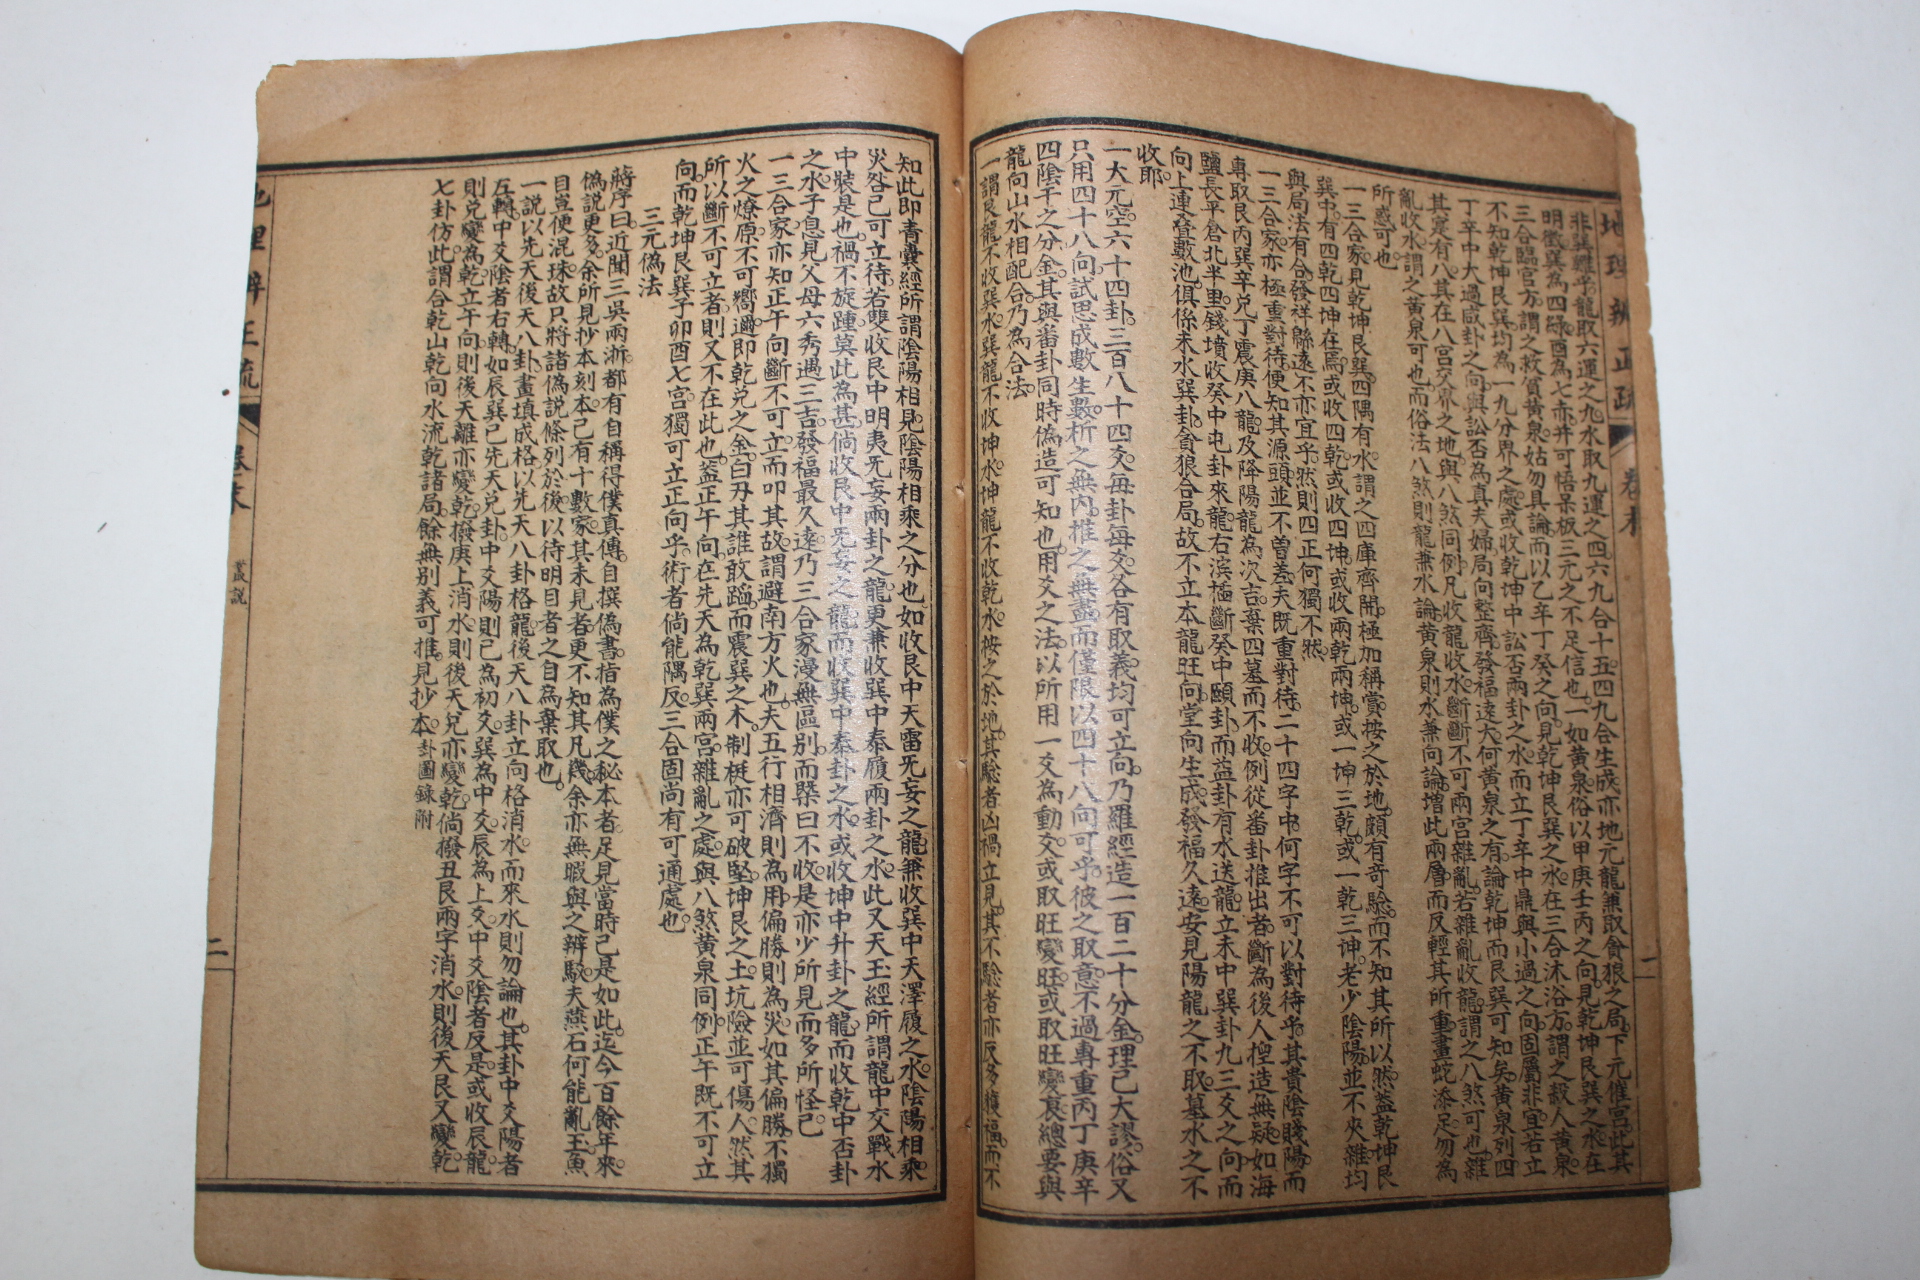 地理辨正疏 卷末 二
非巽離乎龍取六運之九水取九運之四六九合十五四九合生成亦地元龍兼取貪狼之局下元催宮此其
明徵巽為四綠酉為七赤并可悟呆板三元之不足信也一如黃泉俗以甲庚壬丙之向見乾坤艮巽之水在
三合臨官方謂之救貧黃泉姑勿具論而以乙辛丁癸之向見乾坤艮巽之水在三合沐浴方謂之殺人黃泉
不知乾坤艮巽均為一九分界之處或收乾坤中訟否兩卦之水而立丁辛中鼎與小過之向固屬非宜若立
丁辛中大過咸卦之向與訟否為真夫婦局向整齊發福遠大何黃泉之有論乾坤而艮巽可知矣黃泉列四
其寔有八其在八宮交界之地與八煞同例凡收龍收水斷斷不可兩宮雜亂若雜亂收龍謂之八煞可也雜
亂收水謂之黃泉可也而俗法八煞則龍兼水論黃泉則水兼向論增此兩層而反輕其所重畫蛇添足勿為
所惑可也
一三合家見乾坤艮巽四隅有水謂之四庫齊開極加稱賞按之於地頗有奇驗而不知其所以然蓋乾坤艮
巽中有四乾四坤在焉或收四乾或收四坤或收兩乾兩坤或一坤三乾或一乾三坤老少陰陽並不夾雜均
與局法有合發祥緜遠不亦宜乎然則四正何獨不然
一三合家亦極重對待便知其源頭並不曾差夫既重對待二十四字中何字不可以對待乎其貴陰賤陽而
專取艮丙巽辛兌丁震庚八龍及降陽龍為次吉棄四墓而不收例從番卦推出者斷為後人揑造無疑如海
鹽長平倉北半里錢墳收癸中屯卦來龍右濱插斷癸中頤卦而益卦有水送龍立未中巽卦九三爻之向而
向上連叠數池俱係未水巽卦貪狼合局故不立本龍旺向堂向生成發福久遠安見陽龍之不取墓水之不
收耶
一大元空六十四卦三百八十四爻每卦每爻各有取義均可立向乃羅經造一百二十分金理已大謬俗又
只用四十八向試思成數生數析之無內推之無盡而僅限以四十八向可乎彼之取意不過專重丙丁庚辛
四陰干之分金其與番卦同時偽造可知也用爻之法以所用一爻為動爻或取旺變旺或取旺變衰總要與
龍向山水相配合乃為合法
一謂艮龍不收巽水巽龍不收坤水坤龍不收乾水按之於地其驗者凶禍立見其不驗者亦反多獲福而不
知此即青囊經所謂陰陽相見陰陽相乘之分也如收艮中天雷旡妄之龍兼收巽中天澤履之水陰陽相乘
災咎已可立待若雙收艮中明夷旡妄兩卦之龍更兼收巽中泰履兩卦之水此又天玉經所謂龍中交戰水
中裝是也禍不旋踵莫此為甚倘收艮中旡妄之龍而收巽中泰卦之水或收坤中升卦之龍而收乾中否卦
之水子息見父母六秀遇三吉發福最久遠乃三合家漫無區別而槩曰不收是亦少所見而多所怪己
一三合家亦知正午向斷不可立而叩其故謂避南方火也夫五行相濟則為用偏勝則為災如其偏勝不獨
火之燎原不可嚮邇即乾兌之金白刃其誰敢蹈而震巽之木制梃亦可破堅坤艮之土坑險並可傷人然其
所以斷不可立者則又不在此也蓋正午向在先天為乾巽兩宮雜亂之處與八煞黃泉同例正午既不可立
向而乾坤艮巽子卯酉七宮獨可立正向乎術者倘能隅反三合固尚有可通處也
三元偽法
蔣序曰近聞三吳兩浙都有自稱得僕真傳自撰偽書指為僕之秘本者足見當時己是如此迄今百餘年來
偽說更多余所見抄本刻本己有十數家其未見者更不知其凡幾余亦無暇與之辨駁夫燕石何能亂玉魚
目豈便混珠故只將諸偽說條列於後以待明目者之自為棄取也
一說以先天後天八卦畫填成格以先天八卦格龍後天八卦立向格消水而來水則勿論也其卦中爻陽者
左轉中爻陰者右轉如辰巽己先天兌卦中爻陽則已為初爻巽為中爻辰為上爻中爻陰者反是或收辰龍
則兌變為乾立午向則後天離亦變乾撥庚上消水則後天兌亦變乾倘撥丑艮兩字消水則後天艮又變乾
七卦仿此謂合乾山乾向水流乾諸局餘無別義可推見抄本卦圖錄附
地理辨正疏 卷末 叢說 二